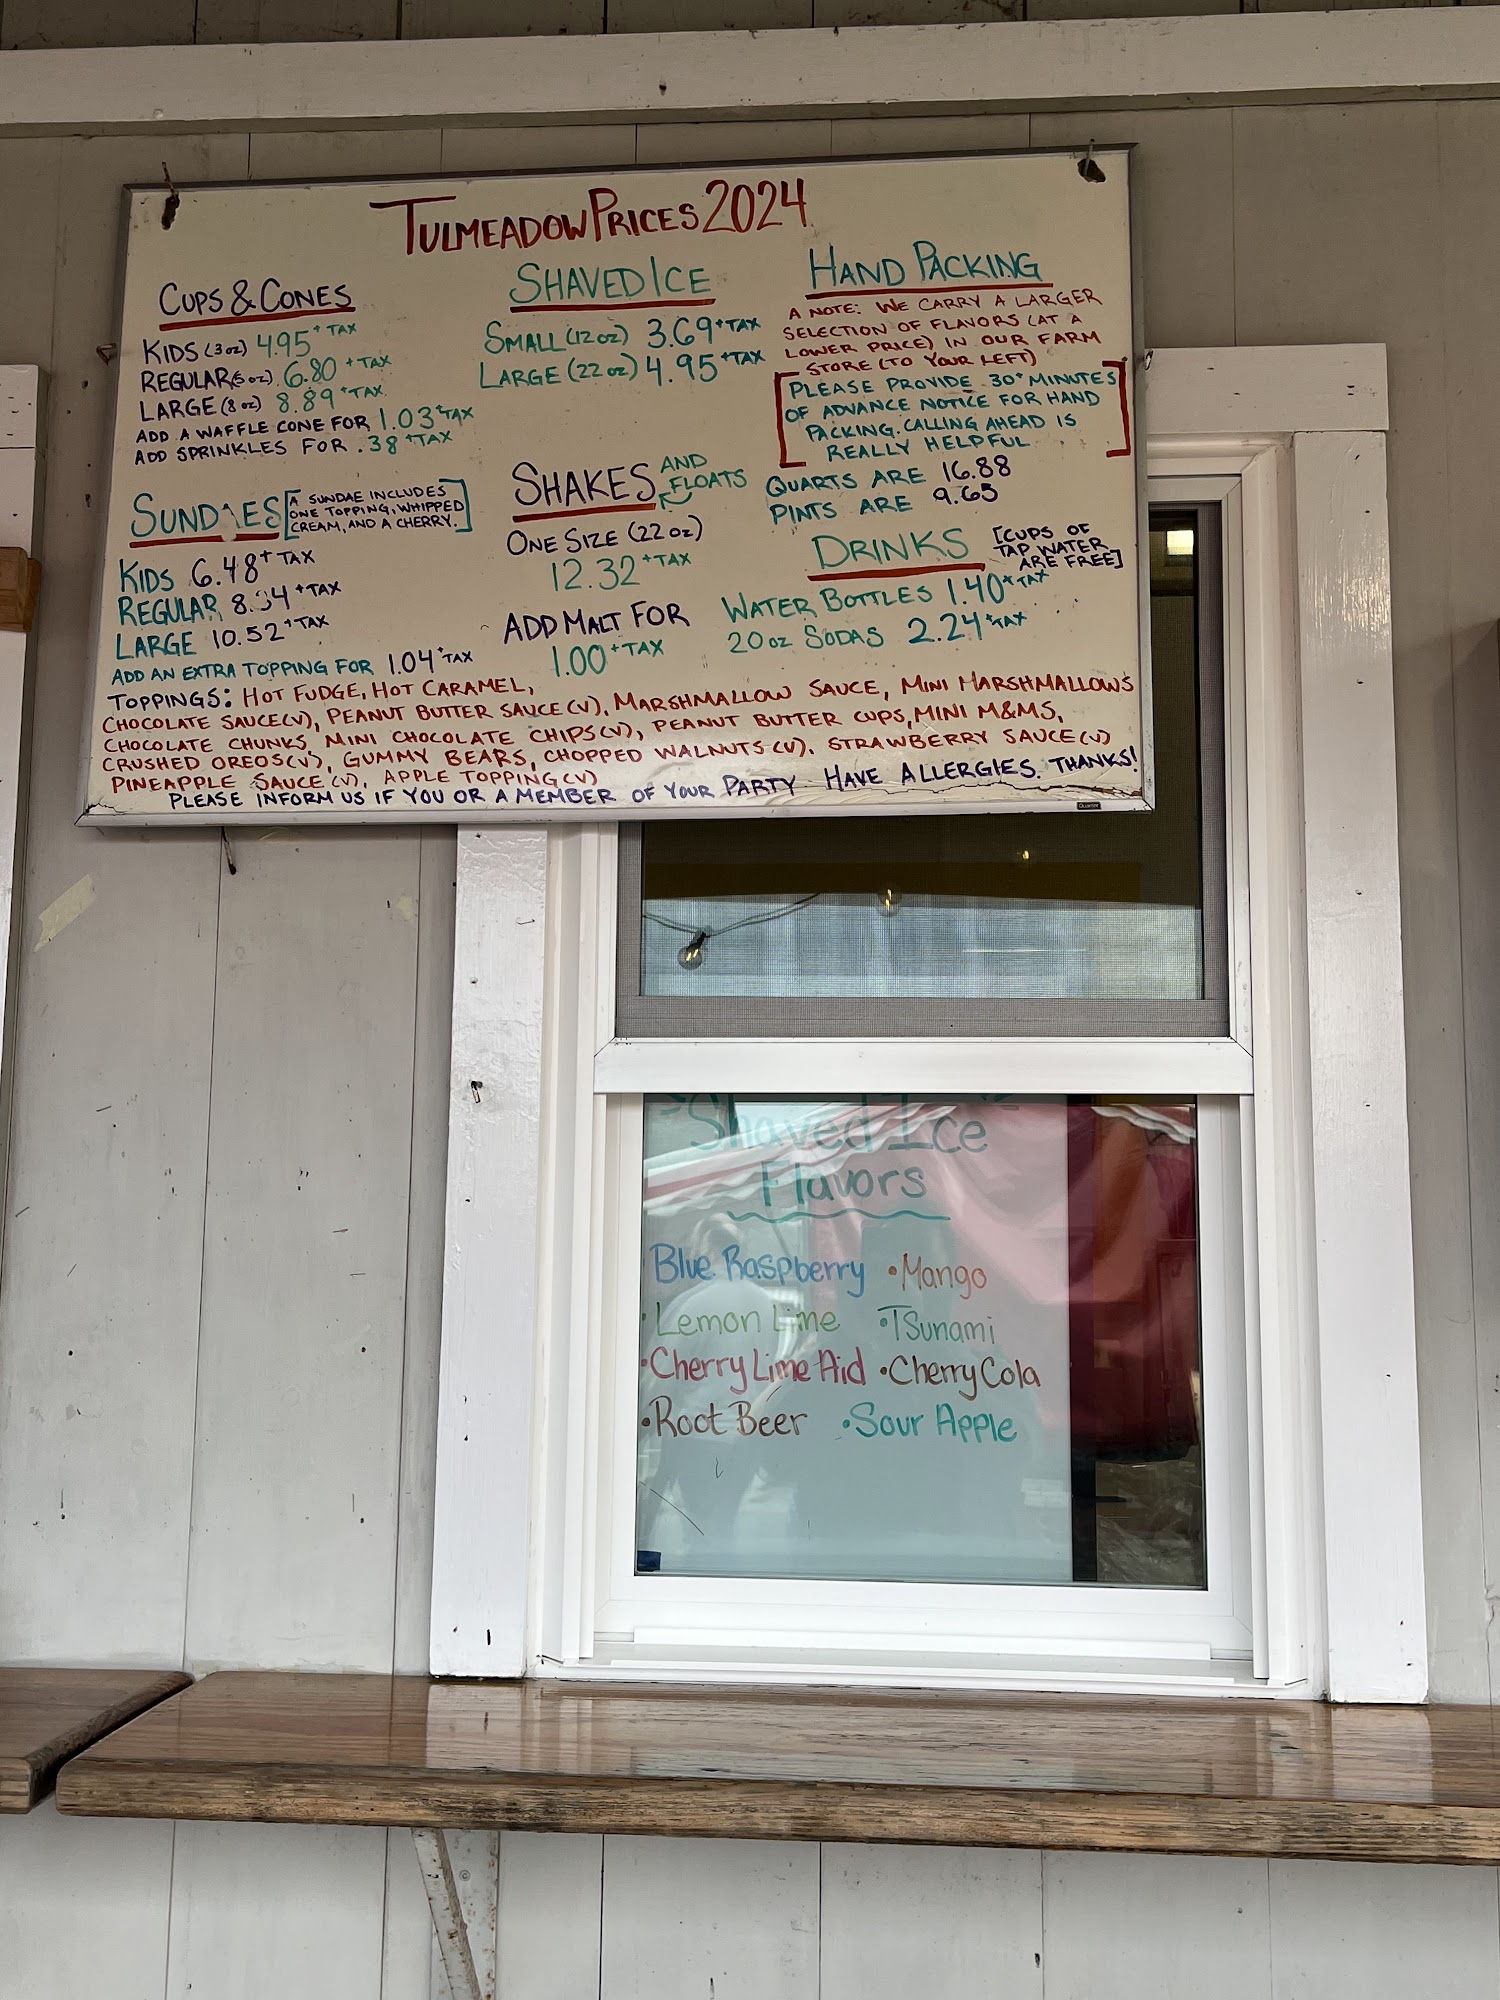 TULMEADOW PRICES 2024
CUPS & CONES
KIDS (3 oz) 4.95 + TAX
REGULAR (5 oz) 6.80 + TAX
LARGE (8 oz) 8.89 + TAX
ADD A WAFFLE CONE FOR 1.03 + TAX
ADD SPRINKLES FOR .38 + TAX
SUNDAES [A SUNDAE INCLUDES
ONE TOPPING, WHIPPED
CREAM, AND A CHERRY.]
KIDS 6.48 + TAX
REGULAR + TAX
LARGE 10.52 + TAX
ADD AN EXTRA TOPPING FOR 1.04 + TAX
SHAVED ICE
SMALL (12 oz) 3.69 + TAX
LARGE (22 oz) 4.95 + TAX
SHAKES AND FLOATS
ONE SIZE (22 oz)
12.32 + TAX
ADD MALT FOR
1.00 + TAX
HAND PACKING
A NOTE: WE CARRY A LARGER
SELECTION OF FLAVORS (AT A
LOWER PRICE) IN OUR FARM
STORE (TO YOUR LEFT)
[PLEASE PROVIDE 30+ MINUTES
OF ADVANCE NOTICE FOR HAND
PACKING. CALLING AHEAD IS
REALLY HELPFUL]
QUARTS ARE 16.88
PINTS ARE 9.65
DRINKS [CUPS OF
TAP WATER
ARE FREE]
WATER BOTTLES 1.40 + TAX
20 oz SODAS 2.24 + TAX
TOPPINGS: HOT FUDGE, HOT CARAMEL,
CHOCOLATE SAUCE (V), PEANUT BUTTER SAUCE (V), MARSHMALLOW SAUCE, MINI MARSHMALLOWS
CHOCOLATE CHUNKS, MINI CHOCOLATE CHIPS (V), PEANUT BUTTER CUPS, MINI M&MS,
CRUSHED OREOS (V), GUMMY BEARS, CHOPPED WALNUTS (V), STRAWBERRY SAUCE (V)
PINEAPPLE SAUCE (V), APPLE TOPPING (V)
PLEASE INFORM US IF YOU OR A MEMBER OF YOUR PARTY HAVE ALLERGIES. THANKS!
Quartet
Shaved Ice
Flavors
Blue Raspberry • Mango
• Lemon Lime • TSunami
• Cherry Lime Aid • Cherry Cola
• Root Beer • Sour Apple